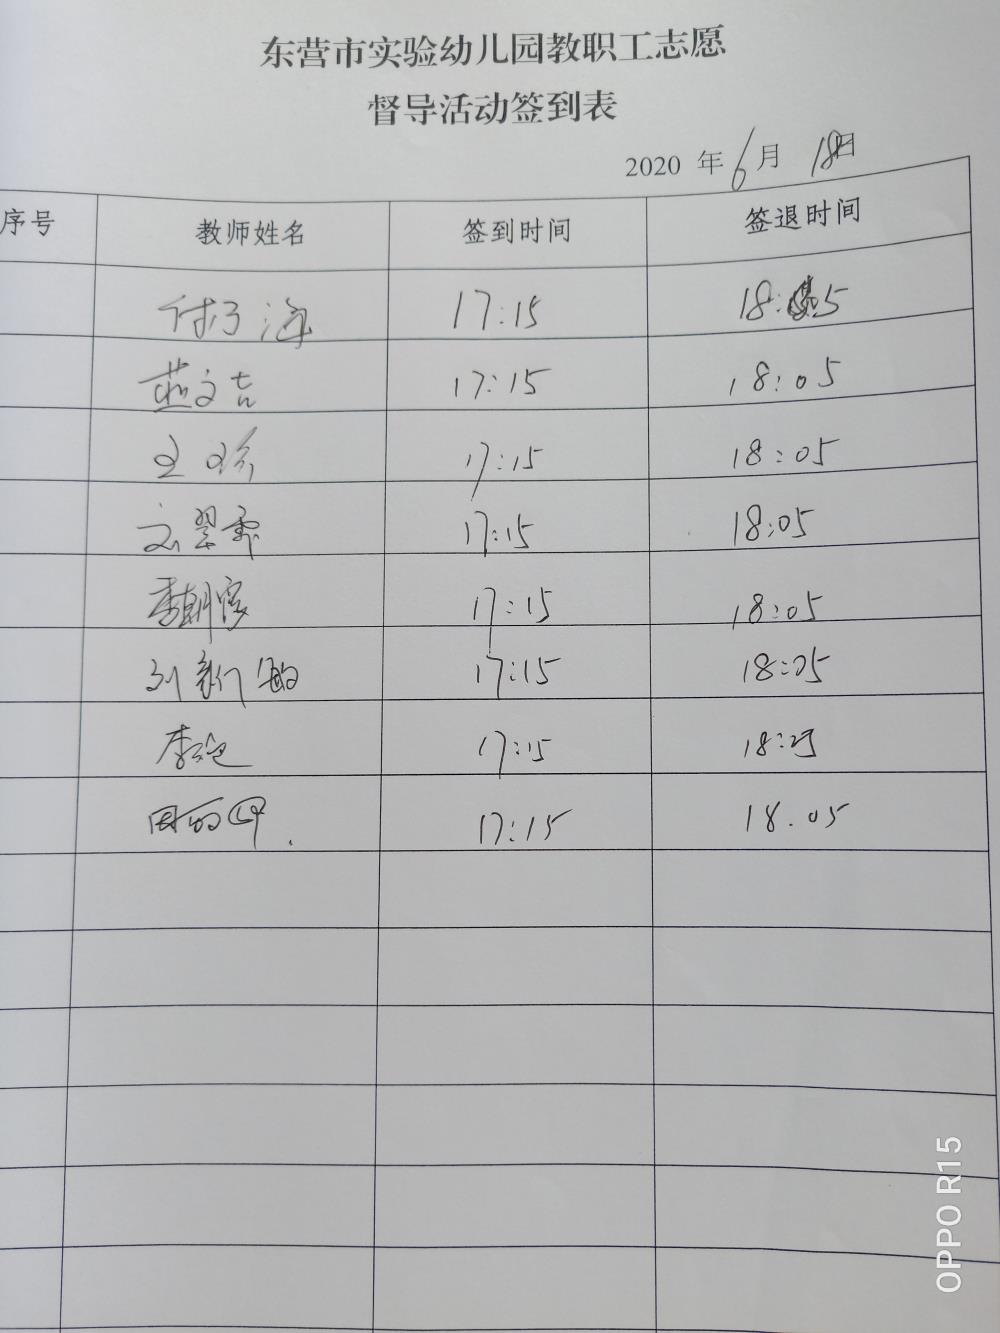 东营市实验幼儿园教职工志愿
督导活动签到表
2020 年 6 月 18 日
序号 教师姓名 签到时间 签退时间
付子海 17:15 18: 5
燕文吉 17:15 18:05
王 17:15 18:05
刘翠霞 17:15 18:05
李朝霞 17:15 18:05
刘新 17:15 18:05
李艳 17:15 18:05
田 17:15 18.05
OPPO R15